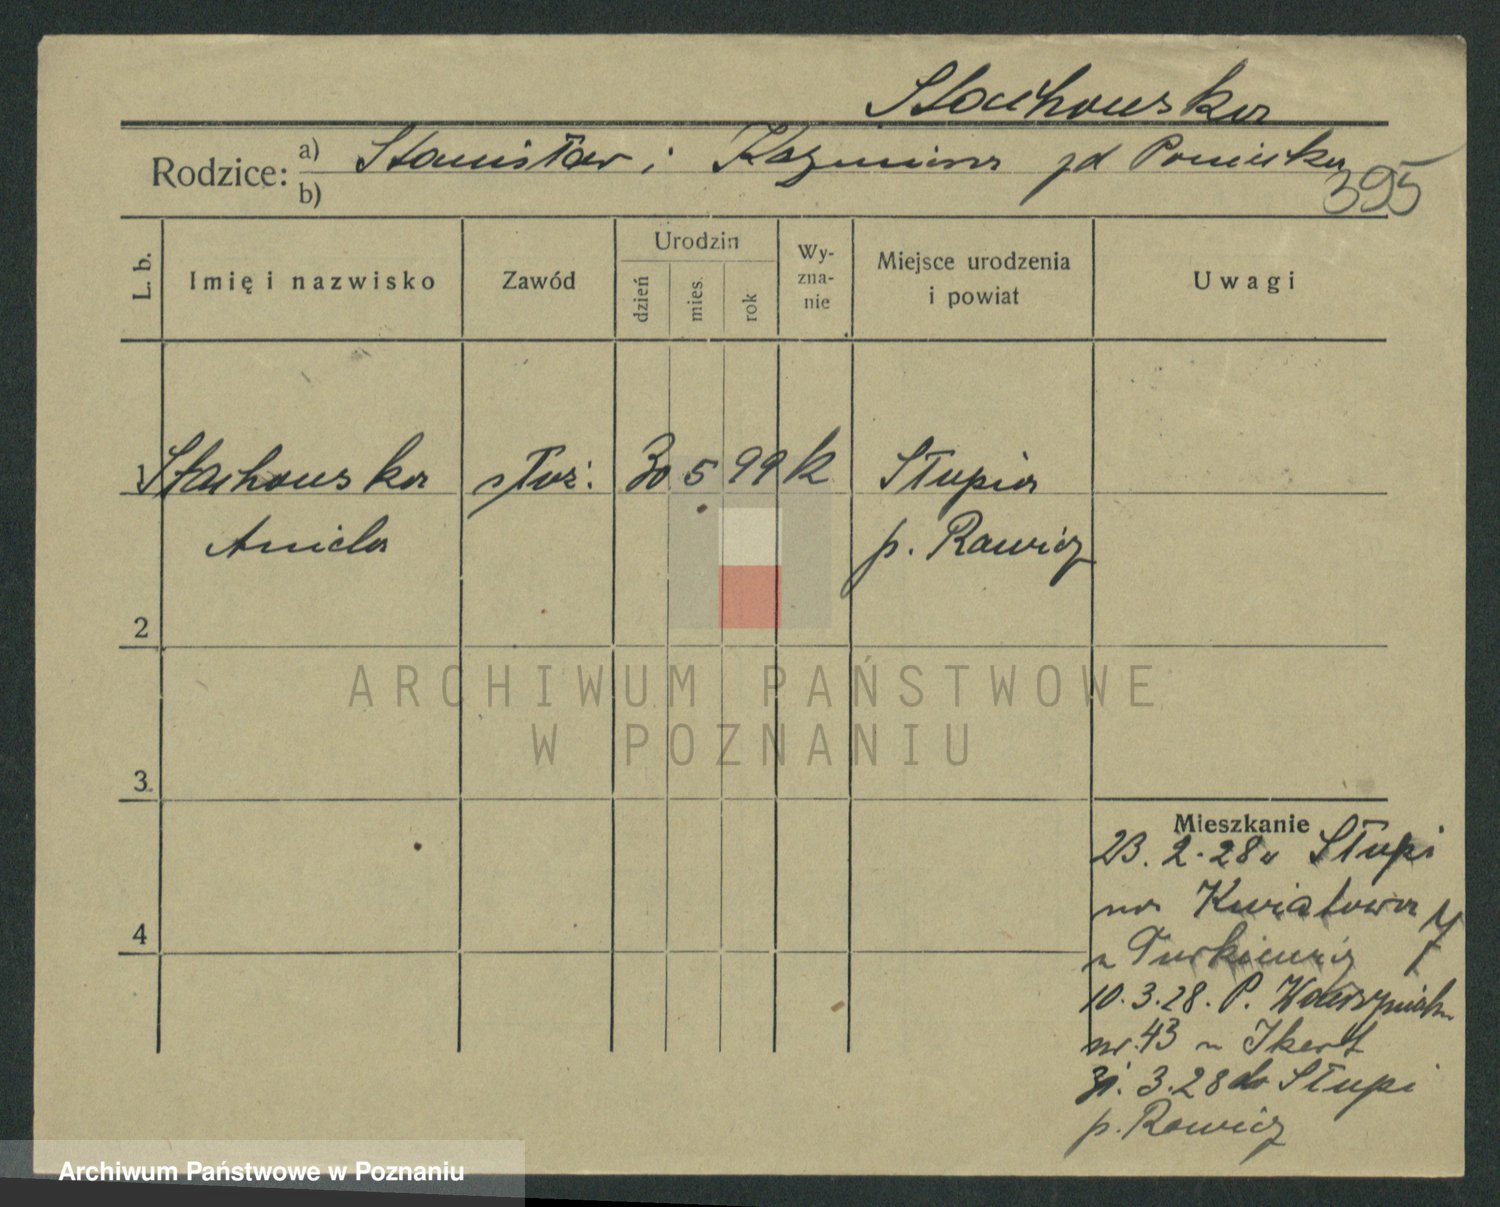 Stachowska
Rodzice: a) Stanisław i Kazimiera zd Ponińska
b)
395
L. b.
Imię i nazwisko
Zawód
Urodzin
dzień
mies.
rok
Wy-
zna-
nie
Miejsce urodzenia
i powiat
Uwagi
1 Stachowska służ: 30 5 99 k Słupia
Aniela p. Rawicz
2
ARCHIWUM PAŃSTWOWE
W POZNANIU
3
Mieszkanie
23. 2. 28 z Słupi
na Kwiatowa 4
u Turkiewicz
10. 3. 28. P. Wawrzyniaka
nr. 43 u Ikert
31. 3. 28 do Słupi
p. Rawicz
4
Archiwum Państwowe w Poznaniu